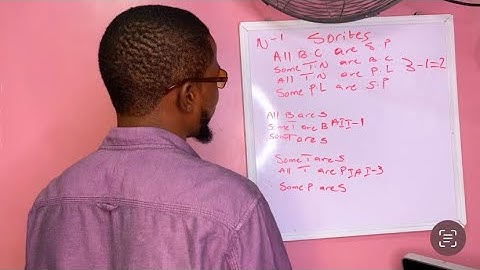 N-1 Sorites
All B.C are S.P
Some T.N are B.C
All T.N are P.L 3-1=2
Some P.L are S.P
All B are S
Some T are B AII-1
Some T are S
Some T are S
All T are P IAI-3
Some P are S